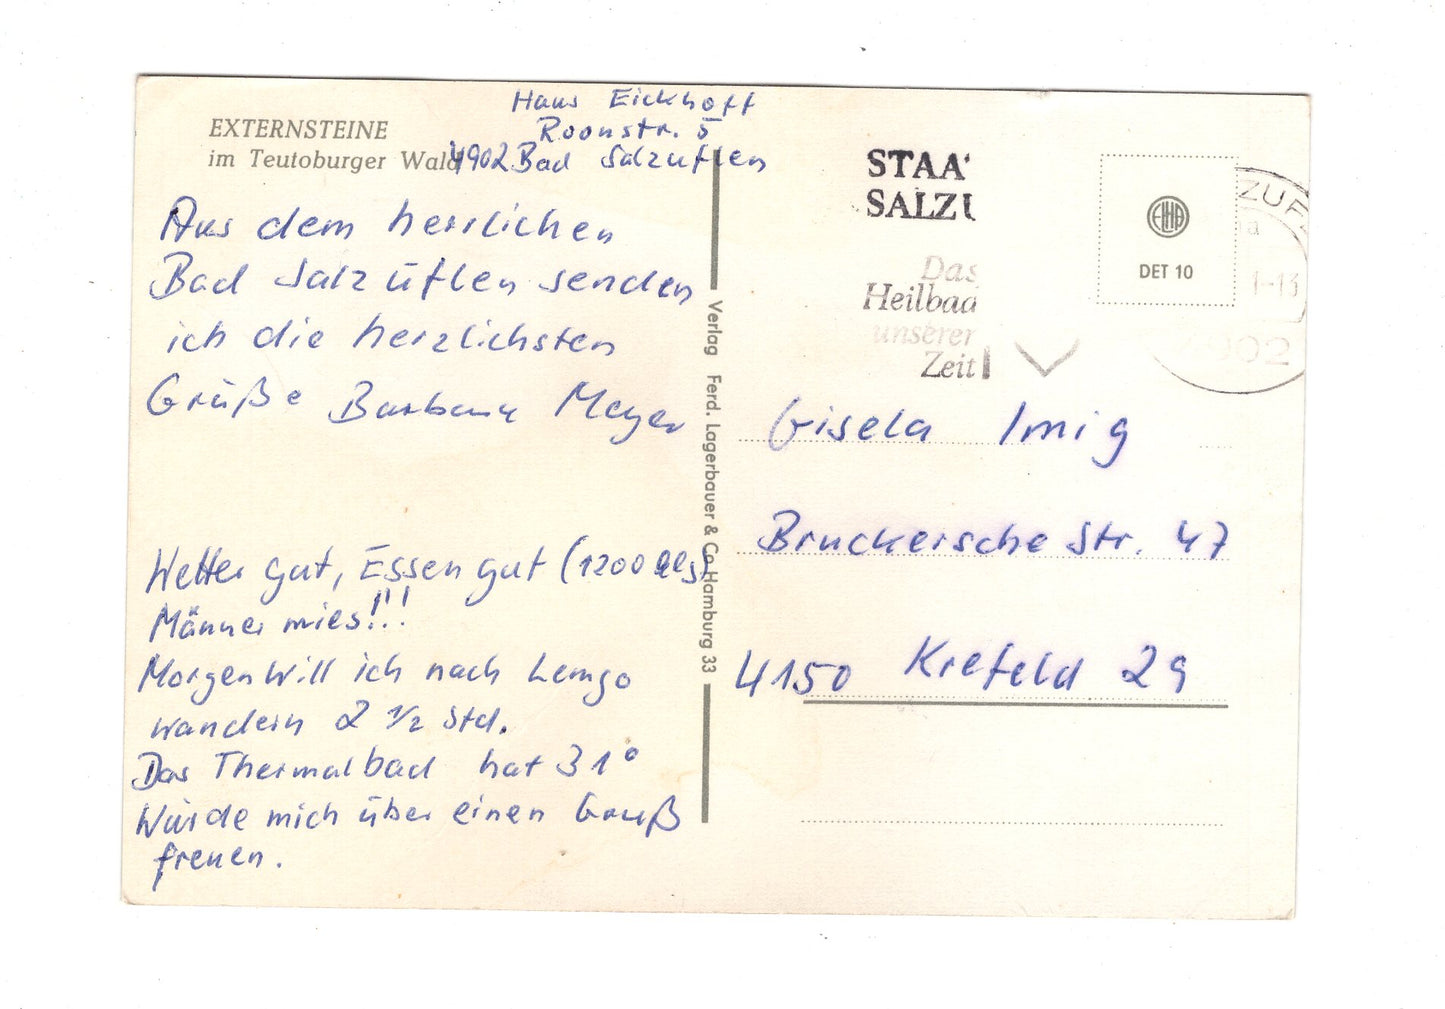 Haus Eickhoff
Roonstr. 5
4902 Bad Salzuflen
EXTERNSTEINE
im Teutoburger Wald
Aus dem herrlichen
Bad Salzuflen senden
ich die herzlichsten
Grüße Barbara Meyer
Wetter gut, Essen gut (1200
Männer mies!!!
Morgen will ich nach Lemgo
wandern 2 1/2 Std.
Das Thermalbad hat 31°
Würde mich über einen Gruß
freuen.
Verlag Ferd. Lagerbauer & Co Hamburg 33
STAA
SALZU
Das
Heilbad
unserer
Zeit
EHA
DET 10
ZUF
-13
4902
Gisela Imig
Bruckersche Str. 47
4150 Krefeld 29